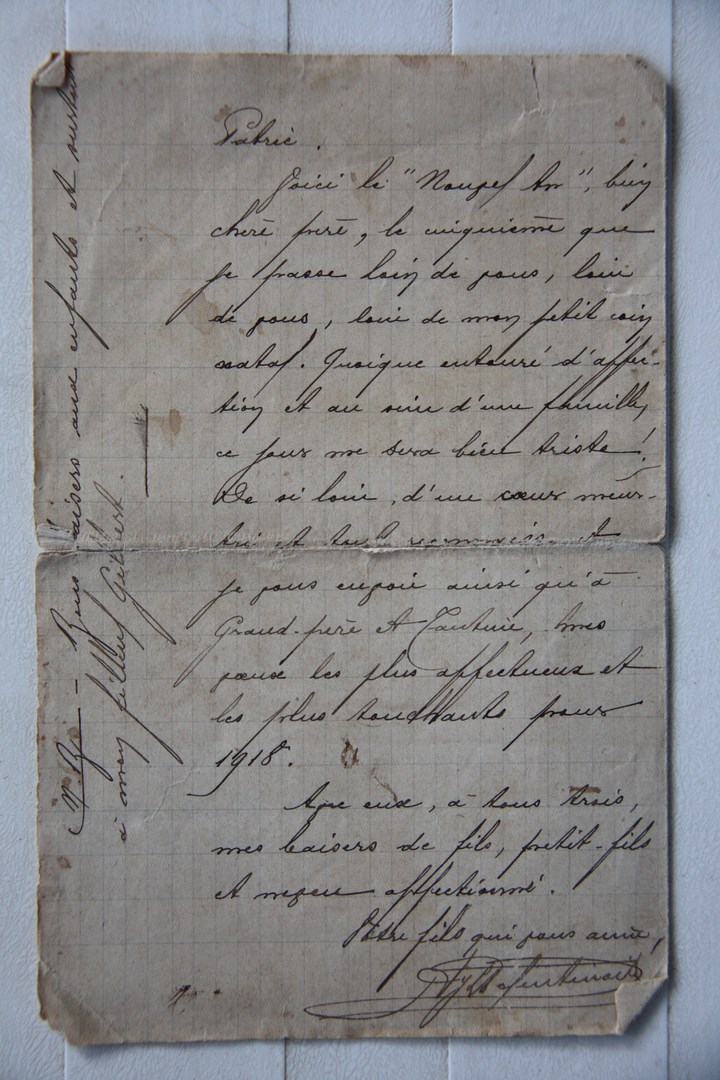 Patrie.
Voici le "Nouvel An", bien
cher père, le cinquième que
je passe loin de vous, loin
de vous, loin de mon petit coin
natal. Quoique entouré d'affec-
tion et au sein d'une famille,
ce jour me sera bien triste!
De si loin, d'un cœur meur-
tri et tout
je vous envoie ainsi qu'à
Grand-père et Tantine, mes
vœux les plus affectueux et
les plus touchants pour
1918.
eux, à tous trois,
mes baisers de fils, petit-fils
et neveu affectionné.
Votre fils qui vous aime,
N.B. – Bons baisers aux enfants et surtout
à mon filleul Gilbert.